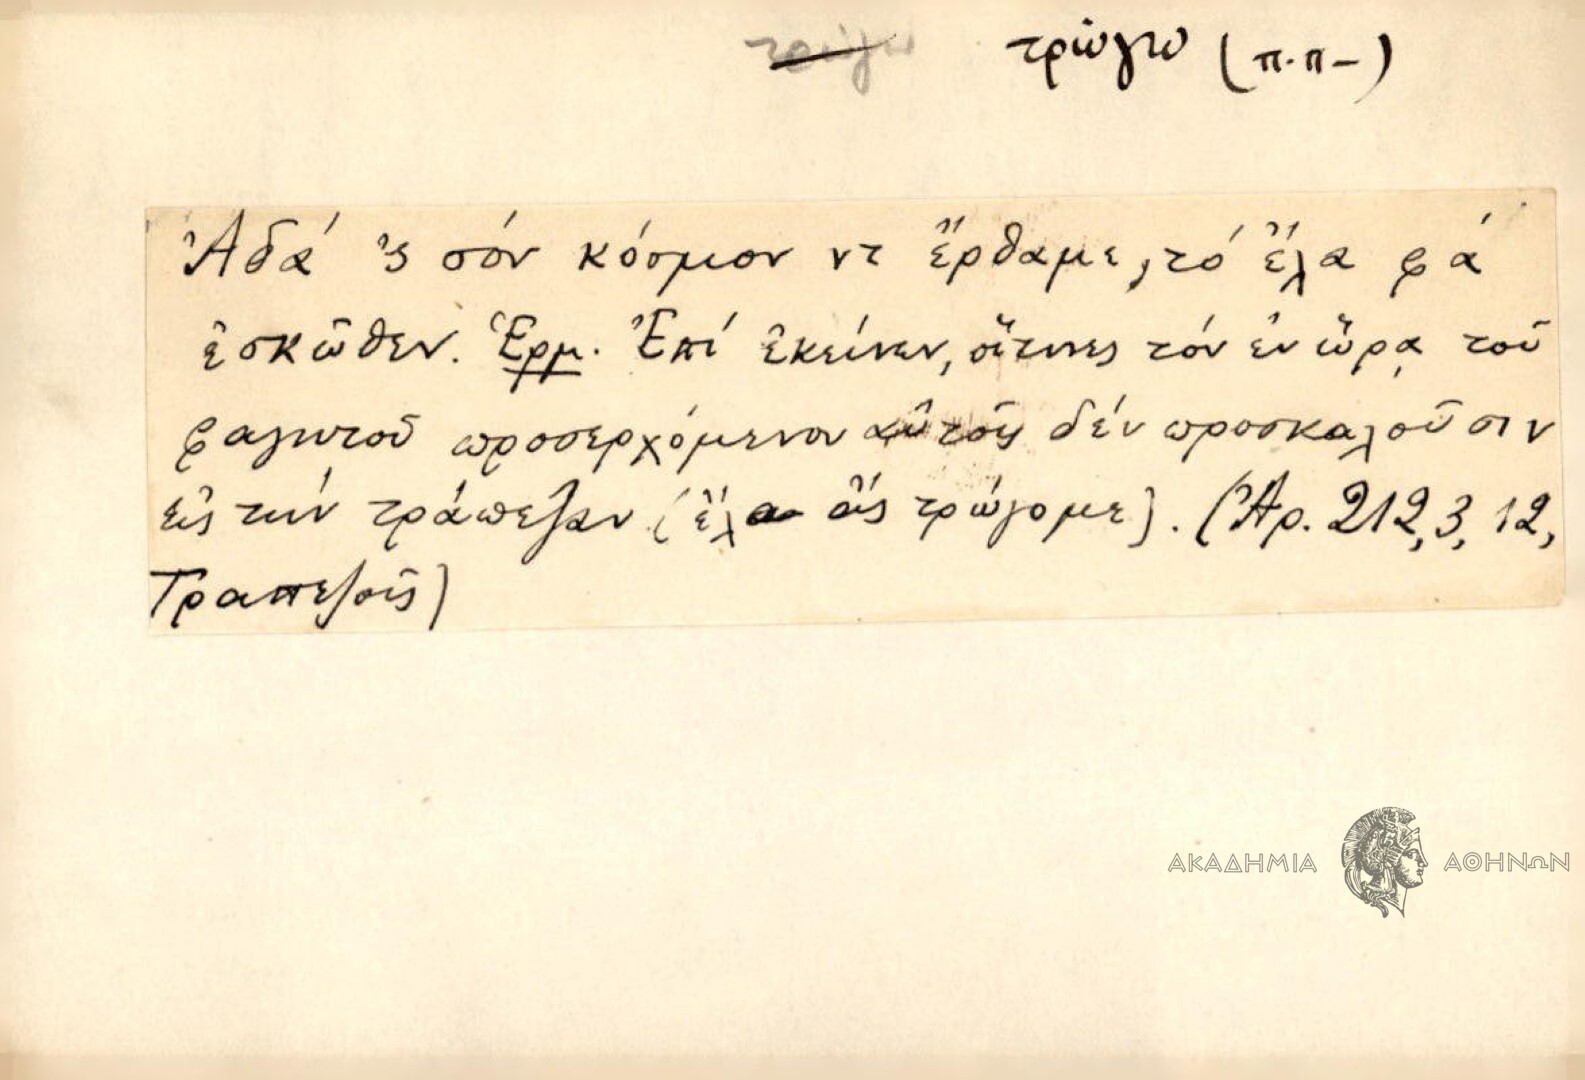 τρώγω τρώγω (π.π-)
Ἀδά 'ς σόν κόσμον ντ ἔρθαμε, τό ἔλα φά
ἐσκῶθεν. Ἑρμ. Ἐπί ἐκείνων, οἵτινες τόν ἐν ὥρᾳ τοῦ
φαγητοῦ προσερχόμενον αὐτοῖς δέν προσκαλοῦσιν
εἰς τήν τράπεζαν (ἔλα ἄς τρώγομε). (Ἀρ. 212, 3, 12,
Τραπεζοῦς)
ΑΚΑΔΗΜΙΑ ΑΘΗΝΩΝ